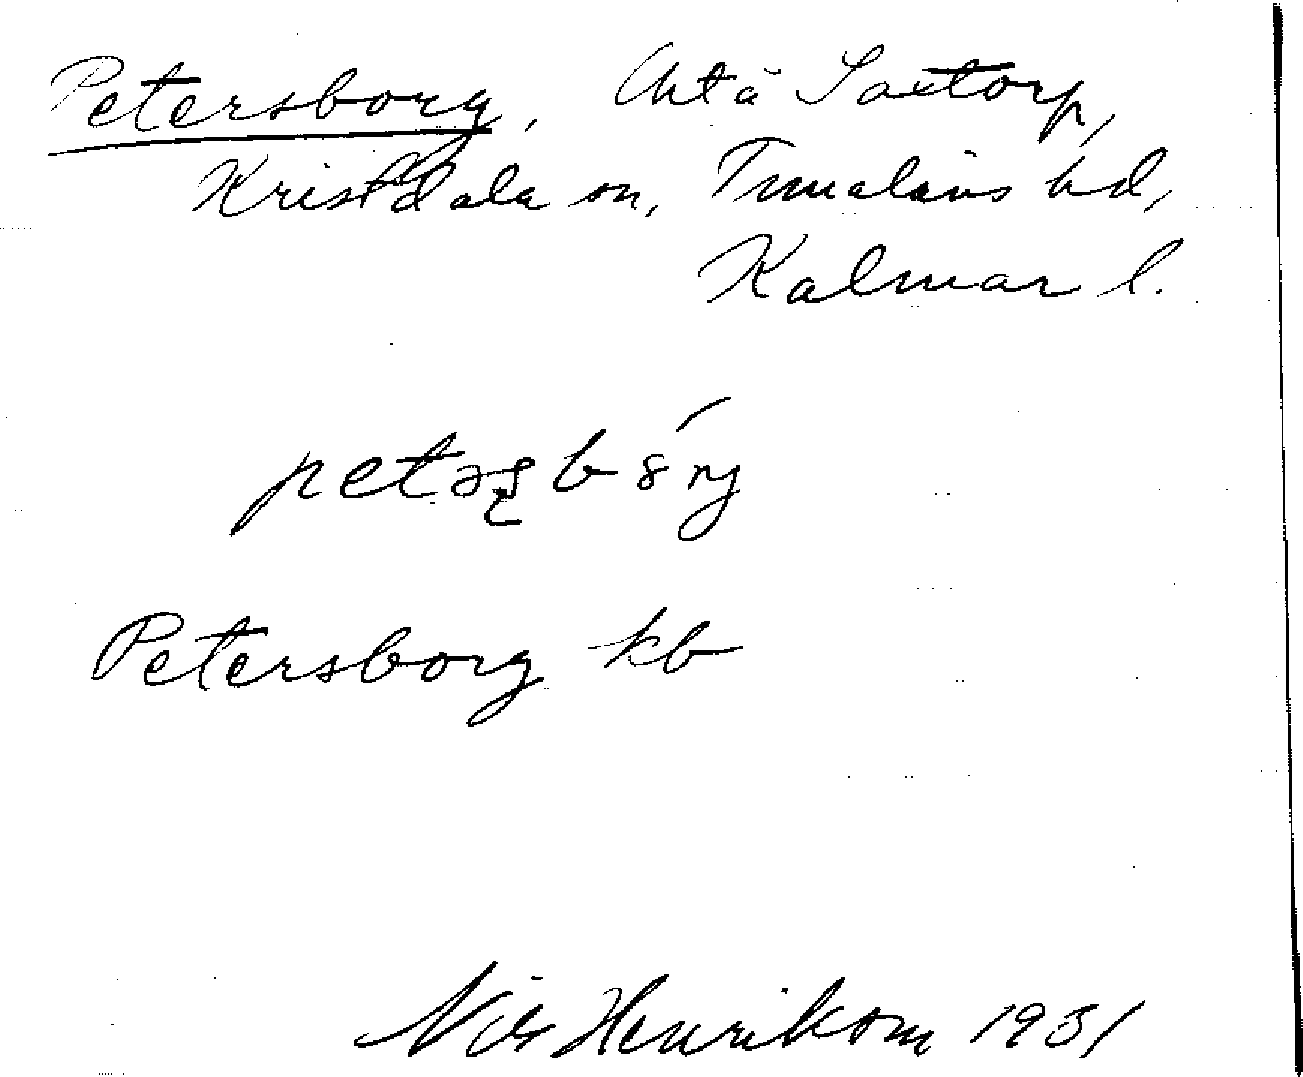 Petersborg, Saxtorp,
Kristdala sn, Tunaläns hd,
Kalmar l.
Petersborg kb
Nils Henrikson 1931